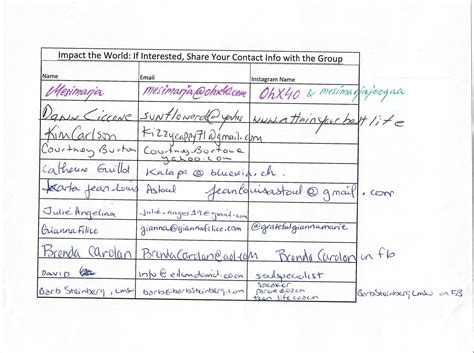 Impact the World: If Interested, Share Your Contact Info with the Group
Name Email Instagram Name
Mesimarja mesimarja@ohx40.com OhX40 & mesimarjajoogaa
Dawn Ciccone sunflonerd@yahoo www.attainyourbestlife
Kim Carlson Kizzycappy71@gmail.com
Courtney Burton Courtney.Burtone
yahoo.com
Catherine Guillot Kalapa @ bluewin.ch.
Karta Jean-Louis Astoul jeanlouisastoul@gmail.com
Julie Angelina julie.anges19@gmail.com
Gianna Filice gianna@giannafilice.com @gratefulgiannamarie
Brenda Carolan BrendaCarolan@aol.com Brenda Carolan on fb
David info@edumdavid.com soulspecialist
Barb Steinberg, LMSW barb@barbsteinberg.com speaker
parent coach
teen life coach Barb Steinberg LMSW on F/B